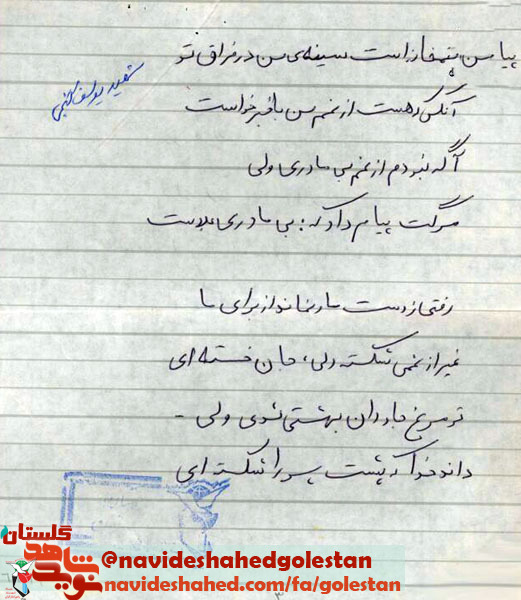 پیامن پنهان است سینه‌ی من در فراق تو
شهید یوسف
آنکس هست از غم من با خبر خداست
آگه نبودم از غم بی مادری ولی
مرگت پیام داد که: بی مادری بلاست
رفتی ز دست مادر نماند از برای ما
غیر از غمی شکسته دلی، جان خسته ای
تو مرغ جاودان بهشتی شوی ولی -
داند خدا که پشت پسر را شکسته ای
گلستان
نوید شاهد
@navideshahedgolestan
navideshahed.com/fa/golestan